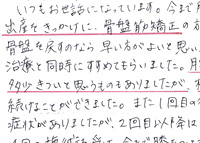 いつもお世話になっています。今まで月
出産をきっかけに、骨盤筋矯正の方
骨盤を戻すのなら早い方がよいと思い
治療と同時にすすめてもらいました。月
多少きついと思うものもありましたが
続けることができました。また1回目の
症状がありましたが、2回目以降は